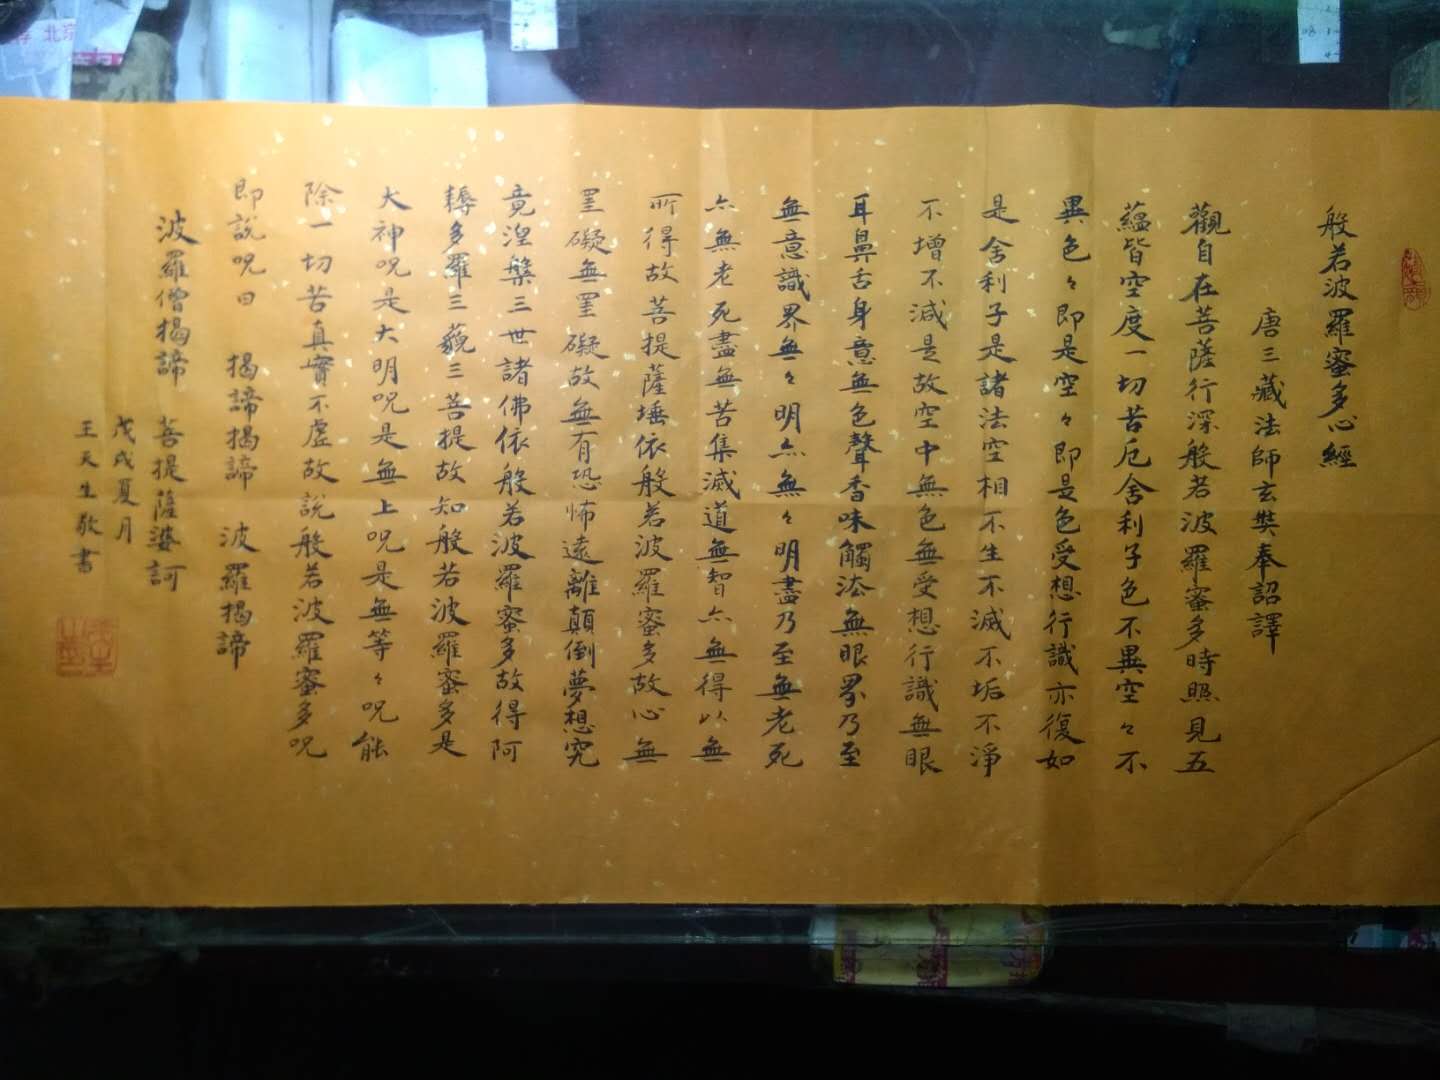 般若波羅蜜多心經
唐三藏法師玄奘奉詔譯
觀自在菩薩行深般若波羅蜜多時照見五
蘊皆空度一切苦厄舍利子色不異空々不
異色々即是空々即是色受想行識亦復如
是舍利子是諸法空相不生不滅不垢不淨
不增不減是故空中無色無受想行識無眼
耳鼻舌身意無色聲香味觸法無眼界乃至
無意識界無々明亦無々明盡乃至無老死
亦無老死盡無苦集滅道無智亦無得以無
所得故菩提薩埵依般若波羅蜜多故心無
罣礙無罣礙故無有恐怖遠離顛倒夢想究
竟涅槃三世諸佛依般若波羅蜜多故得阿
耨多羅三藐三菩提故知般若波羅蜜多是
大神咒是大明咒是無上咒是無等々咒能
除一切苦真實不虛故說般若波羅蜜多咒
即說咒曰 揭諦揭諦 波羅揭諦
波羅僧揭諦 菩提薩婆訶
戊戌夏月
王天生敬書
北京